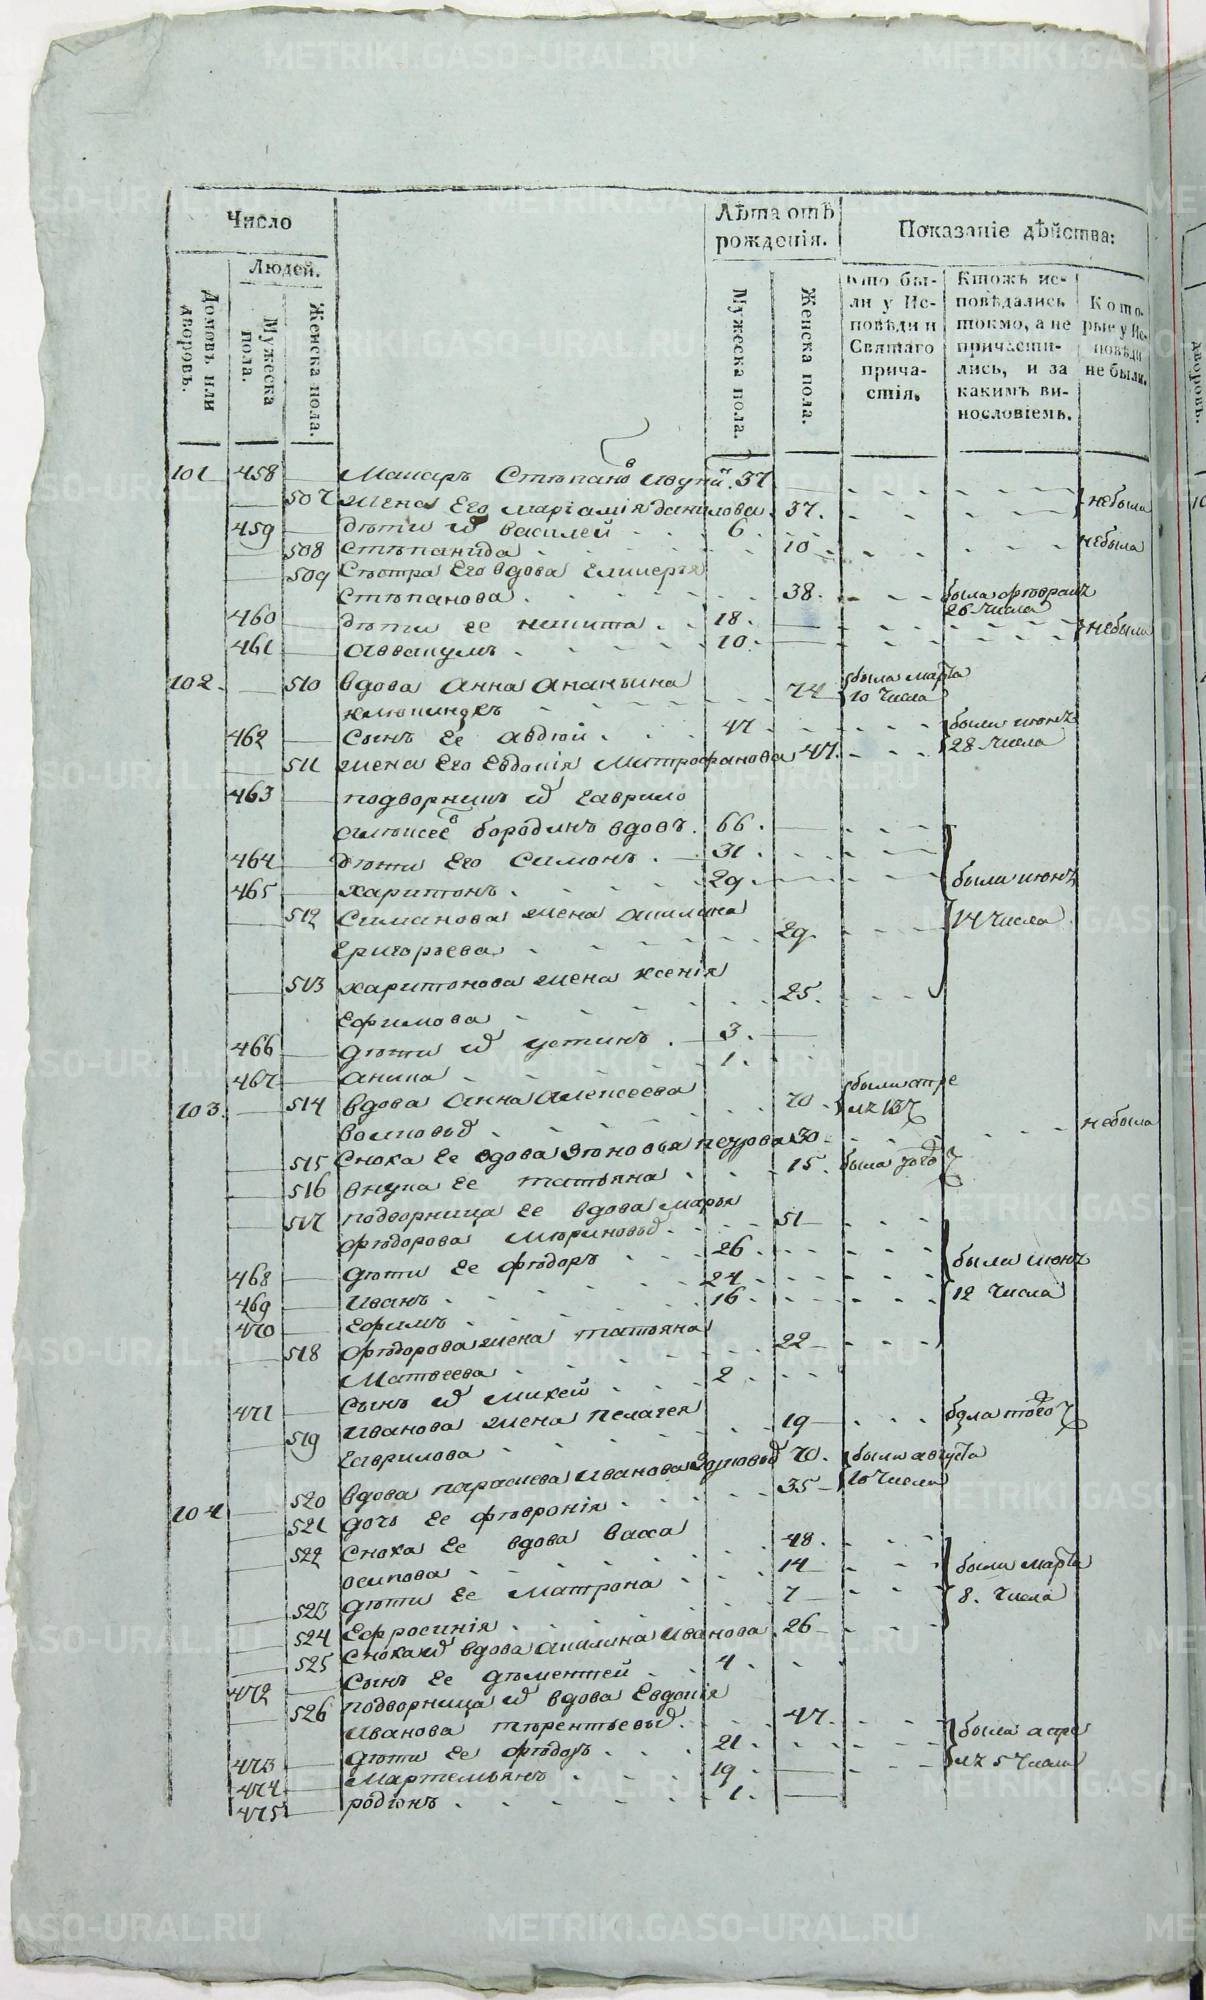 Число
Людей.
Домовъ или дворовъ.
Мужеска пола.
Женска пола.
Лѣта отъ рожденія.
Мужеска пола.
Женска пола.
Показаніе дѣйства:
Кто бы-
ли у Ис-
повѣди и
Святаго
прича-
стія.
Ктожъ ис-
повѣдались
токмо, а не
причасти-
лись, и за
какимъ ви-
нословіемъ.
Кото-
рые у Ис-
повѣди
не были.
101 458 Макаръ Стѣпановъ 37
507 жена Его маріамія данилова 37. небыли
459 дѣти их василей 6
508 Стѣпанида 10 небыла
509 Сѣстра Его вдова Гликерья
Стѣпанова 38. была февраля
26 числа
460 дѣти ее никита 18. небыли
461 аввакумъ 10
102. 510 вдова Анна Ананьина 74 была марта
10 числа
462 Сынъ Ее авдюй 47 были июня
28 числа
511 жена Его Евдокія Митрофанова 47.
463 подворникъ их гаврило
алѣксеевъ бородинъ вдовъ. 66.
464 дѣти Его Симонъ 31
465 харитонъ 29 были июня
14 числа
512 Симанова жена акилина
Григорьева 29
513 харитонова жена ксенія
Ефимова 25.
466 дѣти их устинъ 3.
467 аника 1
103. 514 вдова Анна Алексеева 70 были апре
ля 13 ч
515 Сноха Ее вдова петрова 30 небыла
516 внука Ее татьяна 15. была того ч
517 подворница Ее вдова марья
федорова 51
468 дѣти Ее федоръ 26 были июня
12 числа
469 Иванъ 24
470 Ефимъ 16
518 федорова жена татьяна
Матвеева 22
471 Сынъ их михей 2
519 Иванова жена пелагея
Гаврилова 19 была того ч
104 520 вдова параскева Иванова 70. были августа
10 числа
521 дочь Ее февронія 35
522 Сноха Ее вдова васса
осипова 48. были марта
8. числа
523 дѣти Ее матрона 14
524 Ефросинія 7
525 Сноха их вдова акилина Иванова 26
472 Сынъ Ее дѣментей 4
526 подворница их вдова Евдокія
Иванова тѣрентьевых 47. были апре
ля 5 числа
473 дѣти Ее федоръ 21
474 Мартемьянъ 19
475 родіонъ 1
METRIKI.GASO-URAL.RU